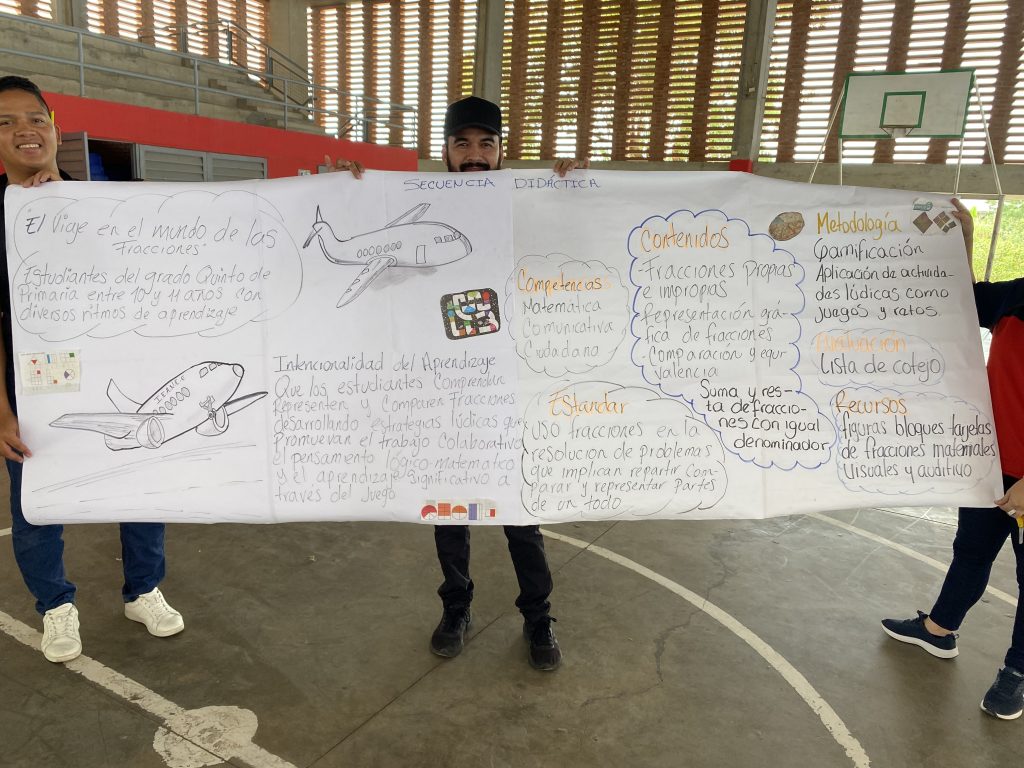 SECUENCIA DIDÁCTICA
El Viaje en el mundo de las
Fracciones"
Estudiantes del grado Quinto de
Primaria entre 10 y 11 años con
diversos ritmos de aprendizaje
Intencionalidad del Aprendizaje
Que los estudiantes Comprendan
Representen y Comparen Fracciones
desarrollando estrategias lúdicas que
Promuevan el trabajo Colaborativo
el pensamiento lógico-matematico
y el aprendizaje significativo a
través del Juego
Competencias
Matemática
Comunicativa
Ciudadano
Estandar
USO fracciones en la
resolución de problemas
que implican repartir Com-
parar y representar Partes
de un todo
Contenidos
-Fracciones propias
e impropias
-Representación grá-
fica de fracciones
-Comparación y equi-
valencia
Suma y res-
ta de fraccio-
nes con igual
denominador
Metodología
Gamificación
Aplicación de activida-
des lúdicas como
juegos y ratos
Evaluación
Lista de cotejo
Recursos
figuras bloques tarjetas
de fracciones materiales
visuales y auditivo